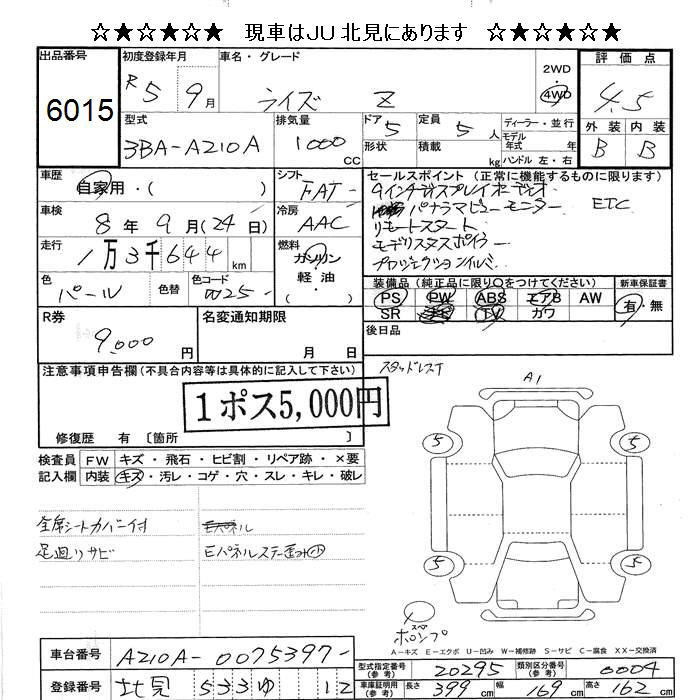 ☆★☆★☆★ 現車はJU北見にあります ☆★☆★☆★
出品番号 初度登録年月 車名・グレード 2WD 評価点
6015 R5 9月 ライズ Z 4WD 4.5
型式 排気量 ドア 定員 ディーラー・並行 外装 内装
3BA-A210A 1000 CC 5 5人 モデル年式 年 B B
形状 積載 kg ハンドル 左・右
車歴 シフト セールスポイント (正常に機能するものに限ります)
自家用・( ) FAT 9インチディスプレイオーディオ
車検 冷房 パノラマビューモニター ETC
8年 9月(24日) AAC リモートスタート
走行 燃料 モデリスタスポイラー
1万3千644km ガソリン プロジェクションイルミ
軽油
( )
色 色替 色コード 装備品 (純正品に限り○をつけてください) 新車保証書
パール 0025- PS PW ABS エアB AW 有・無
SR 革 TV ナワ
R券 名変通知期限 後日品
9,000円 月 日
注意事項申告欄(不具合内容等は具体的に記入して下さい) スタッドレスT
1ポス5,000円
修復歴 有 〔箇所 〕
検査員 FW キズ・飛石・ヒビ割・リペア跡・×要
記入欄 内装 キズ・汚レ・コゲ・穴・スレ・キレ・破レ
A1
5 5
5 5
全席シートカバー付
足廻りサビ Eパネルステー歪み小
スペ
ホロンプ
A-キズ E-エクボ U-凹み W-補修跡 S-サビ C-腐食 XX-交換済
車台番号 A210A-0075397- 型式指定番号(参考) 20295 類別区分番号(参考) 0004
登録番号 北見 533 ゆ 12 車庫証明用(参考) 長さ 399cm 幅 169cm 高さ 162cm